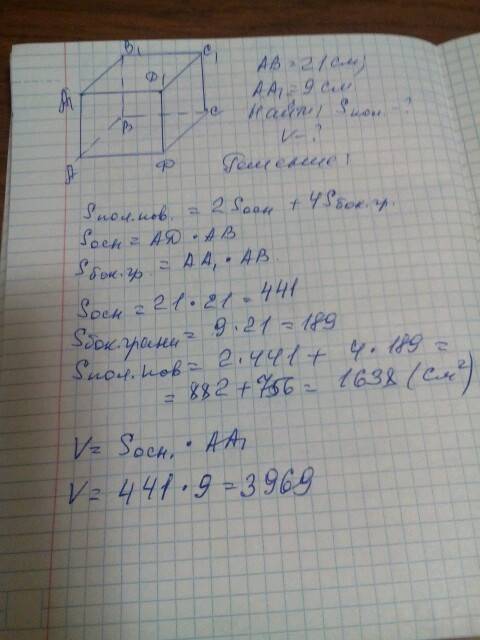 B₁ C₁
A₁ D₁
B C
A D
AB = 21 (см)
AA₁ = 9 см
Найти: Sпол. - ?
V - ?
Решение:
Sпол.пов. = 2Sосн + 4Sбок.гр.
Sосн = AD · AB
Sбок.гр. = AA₁ · AB
Sосн = 21 · 21 = 441
Sбок.грани = 9 · 21 = 189
Sпол.пов = 2 · 441 + 4 · 189 =
= 882 + 756 = 1638 (см²)
V = Sосн. · AA₁
V = 441 · 9 = 3969